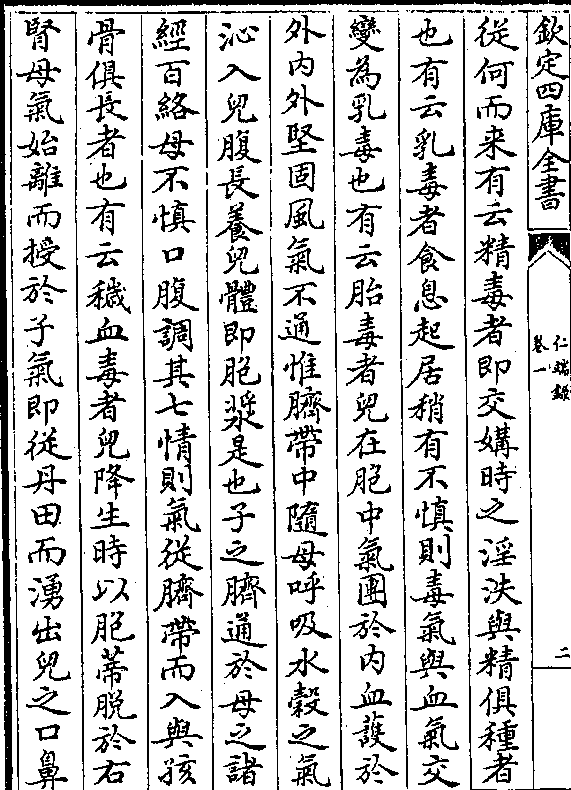 欽定四庫全書
仁端錄
卷一
二
從何而来有云精毒者即交媾時之淫泆與精俱種者
也有云乳毒者食息起居稍有不慎則毒氣與血氣交
變為乳毒也有云胎毒者兒在胞中氣團於内血護於
外内外堅固風氣不通惟臍帶中隨母呼吸水穀之氣
沁入兒腹長養兒體即胞漿是也子之臍通於母之諸
經百絡母不慎口腹調其七情則氣從臍帶而入與孩
骨俱長者也有云穢血毒者兒降生時以胞蒂脱於右
腎母氣始離而授於子氣即從丹田而湧出兒之口鼻